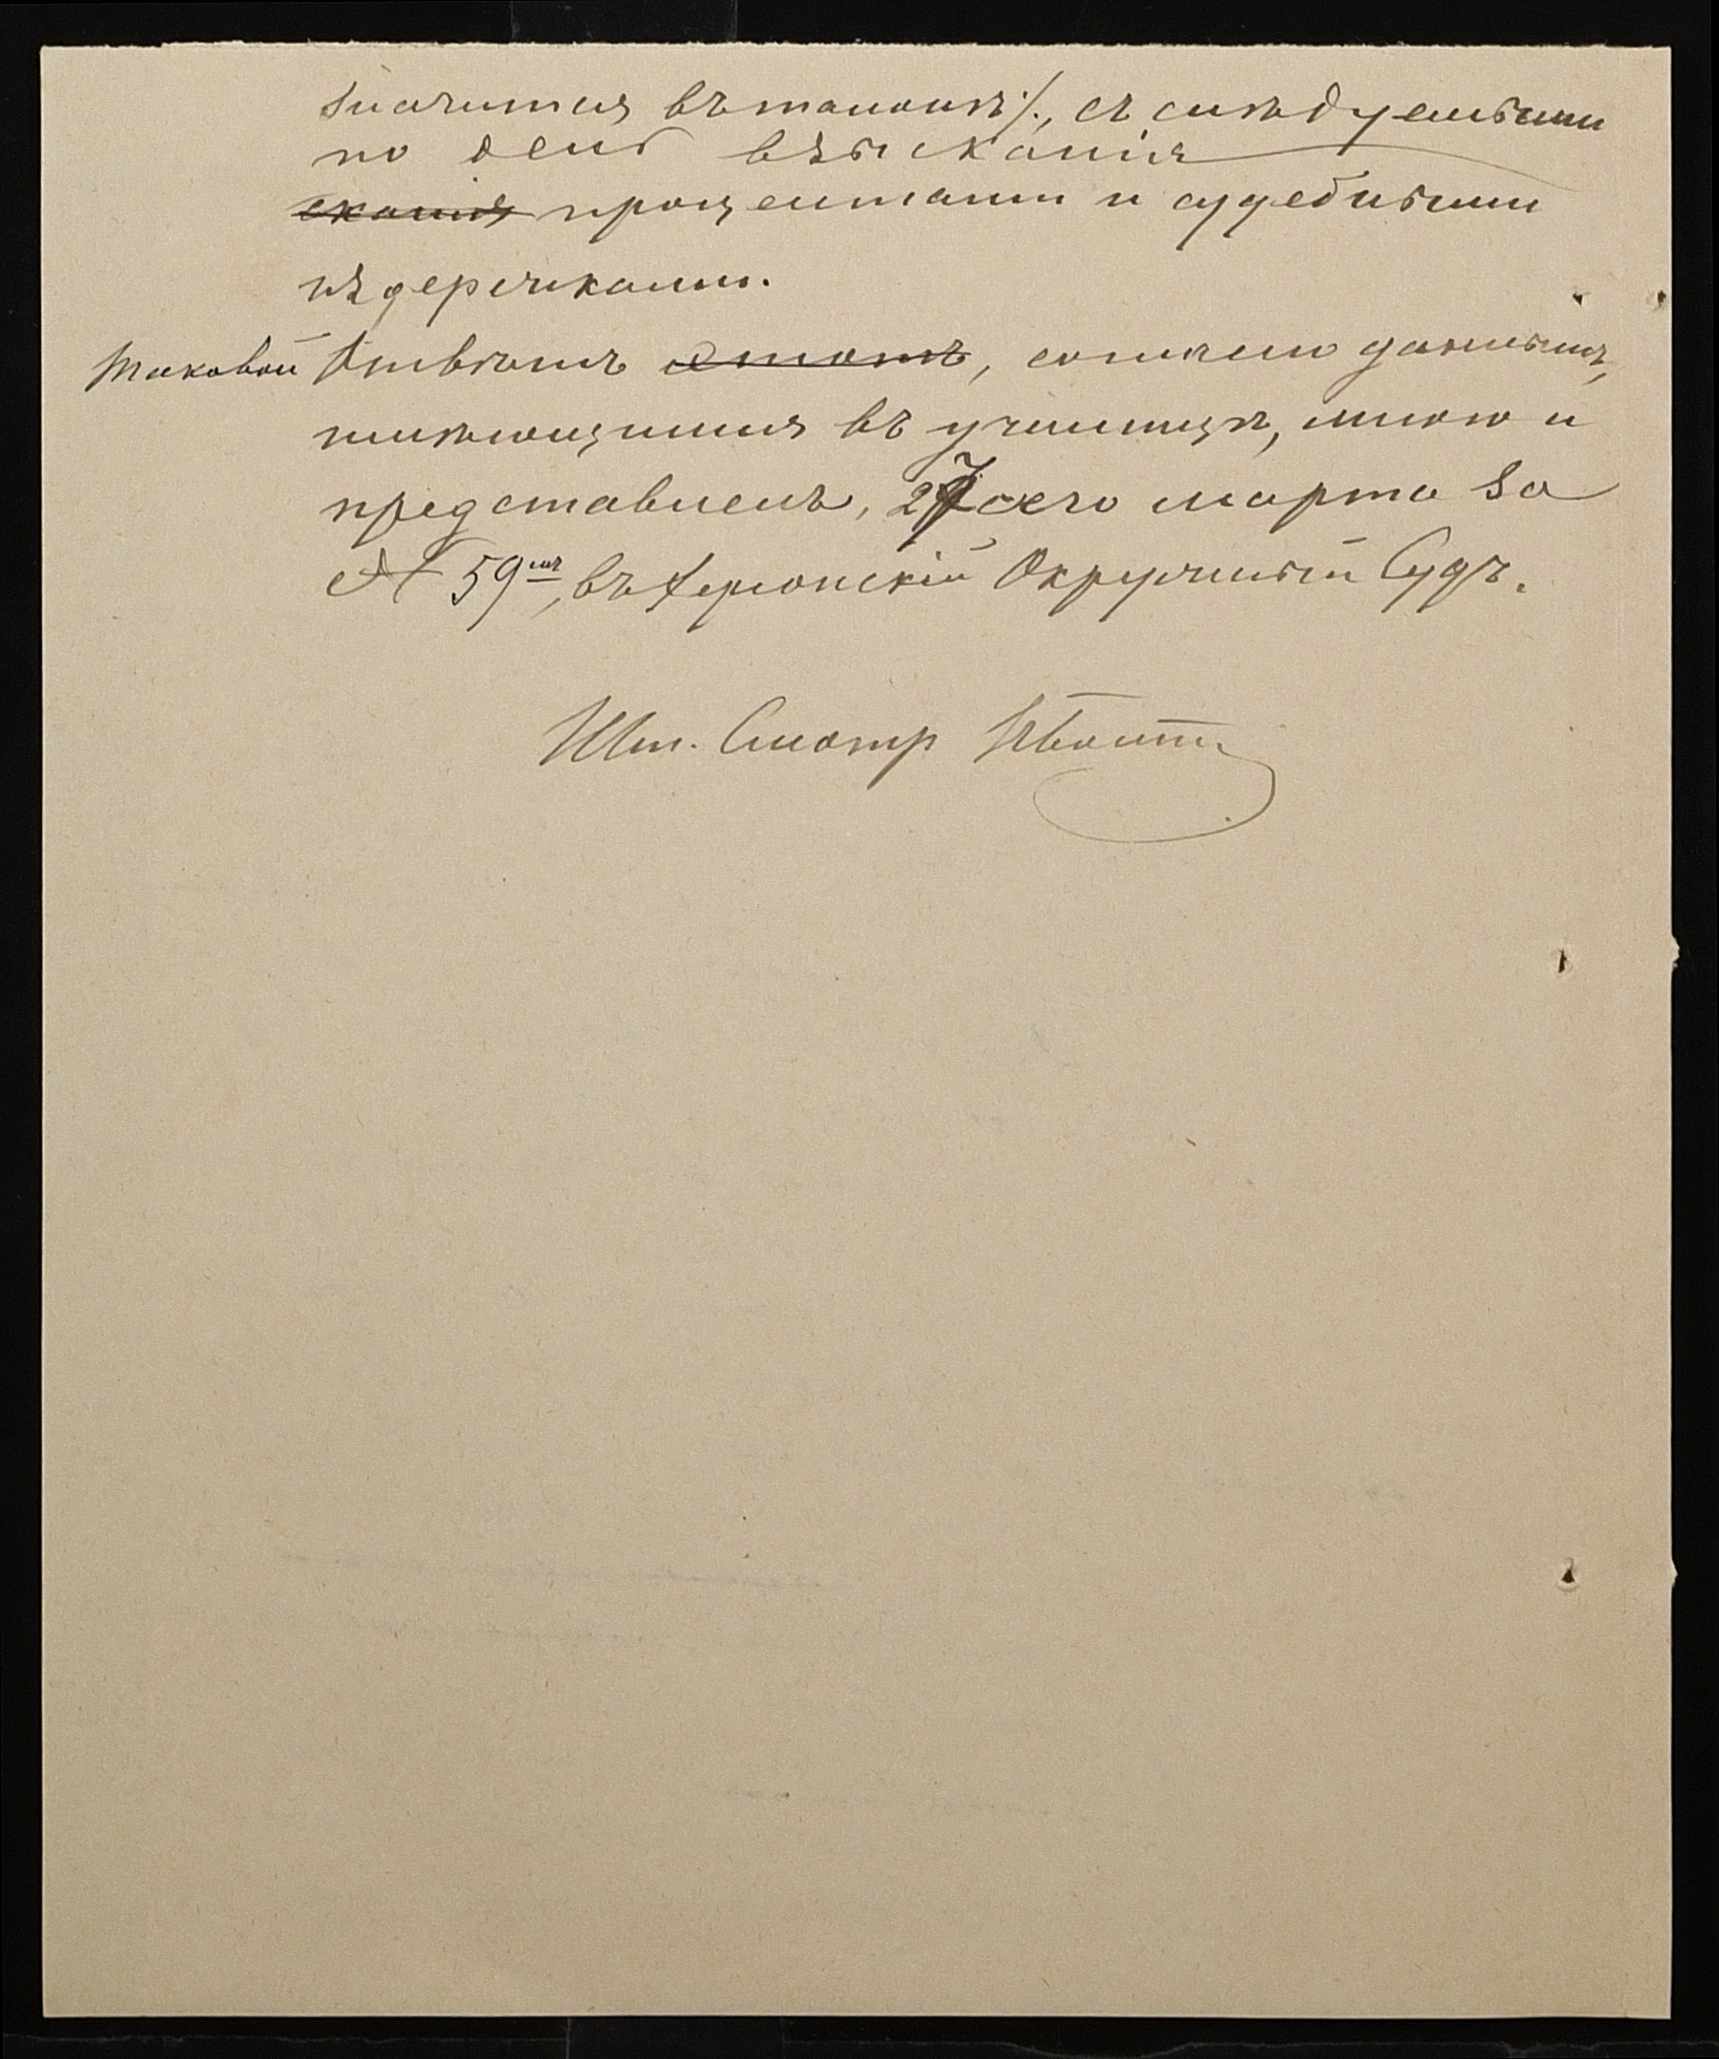 значится въ талонѣ·/., съ слѣдуемыми
по день взысканія
сканія процентами и судебными
издержками.
Таковой Отвѣтъ этотъ, согласно даннымъ,
имѣющимся въ училищѣ, мною и
представленъ, 27 сего марта за
№ 59мъ, въ Херсонскій Окружный Судъ.
Шт. Смотр